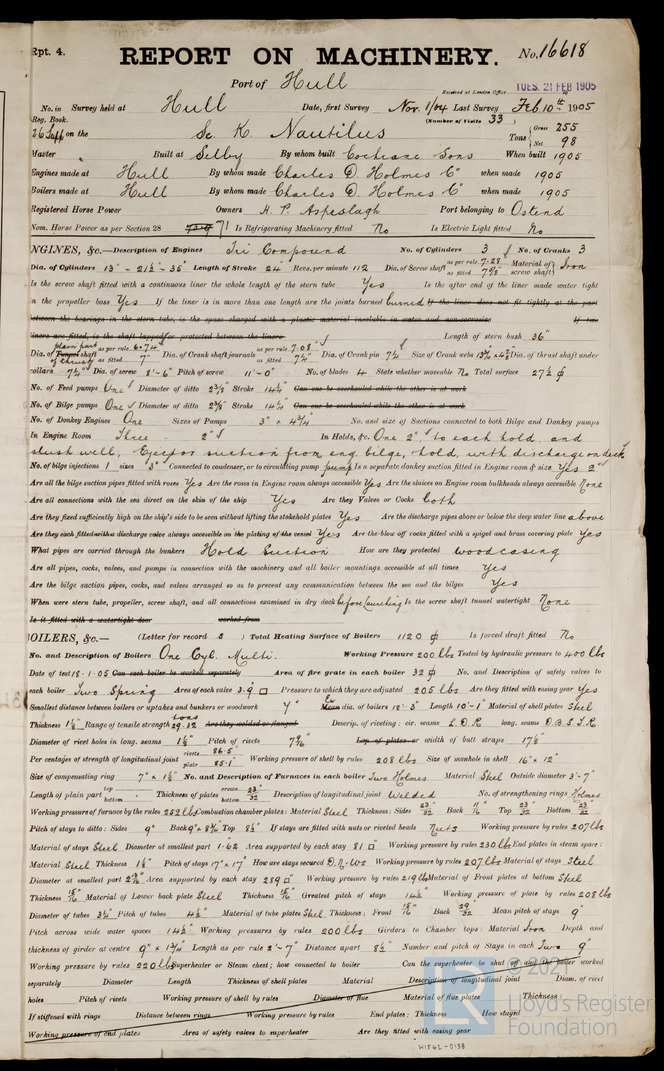 Rpt. 4.
REPORT ON MACHINERY. No. 16618
Port of Hull
Received at London Office TUES. 21 FEB 1905
No. in Survey held at Hull Date, first Survey Nov. 1/04 Last Survey Feb. 10th 1905
Reg. Book. (Number of Visits 33)
on the Sc. K. Nautilus Tons Gross 255 Net 98
Master Built at Selby By whom built Cochrane Sons When built 1905
Engines made at Hull By whom made Charles D. Holmes Co when made 1905
Boilers made at Hull By whom made Charles D. Holmes Co when made 1905
Registered Horse Power Owners H. P. Aspeslagh Port belonging to Ostend
Nom. Horse Power as per Section 28 71 Is Refrigerating Machinery fitted No Is Electric Light fitted No
NGINES, &c.—Description of Engines Tri Compound No. of Cylinders 3 No. of Cranks 3
Dia. of Cylinders 13" - 21½ - 35" Length of Stroke 24" Revs. per minute 112 Dia. of Screw shaft as per rule 7.28 as fitted 7⅞" Material of screw shaft Iron
Is the screw shaft fitted with a continuous liner the whole length of the stern tube Yes Is the after end of the liner made water tight
in the propeller boss Yes If the liner is in more than one length are the joints burned burned If the liner does not fit tightly at the part
between the bearings in the stern tube, is the space charged with a plastic material insoluble in water and non-corrosive If two
liners are fitted, is the shaft lapped or protected between the liners Length of stern bush 36"
Dia. of Tunnel shaft as per rule 6.74 as fitted 7" Dia. of Crank shaft journals as per rule 7.08" as fitted 7½" Dia. of Crank pin 7½ Size of Crank webs Dia. of thrust shaft under
collars 7½" Dia. of screw 8'-6" Pitch of screw 11'-0" No. of blades 4 State whether moveable No Total surface 27½ ϕ
No. of Feed pumps One Diameter of ditto 2⅜" Stroke 14¼" Can one be overhauled while the other is at work
No. of Bilge pumps One Diameter of ditto 2⅜" Stroke 14¼" Can one be overhauled while the other is at work
No. of Donkey Engines One Sizes of Pumps 3" × 4¾" No. and size of Suctions connected to both Bilge and Donkey pumps
In Engine Room Three - 2" In Holds, &c. One 2" to each hold and
slush well, Ejector suction from eng. bilge, hold, with discharge on deck
No. of bilge injections 1 sizes 3" Connected to condenser, or to circulating pump pump Is a separate donkey suction fitted in Engine room & size Yes 2"
Are all the bilge suction pipes fitted with roses Yes Are the roses in Engine room always accessible Yes Are the sluices on Engine room bulkheads always accessible None
Are all connections with the sea direct on the skin of the ship Yes Are they Valves or Cocks both
Are they fixed sufficiently high on the ship's side to be seen without lifting the stokehold plates Yes Are the discharge pipes above or below the deep water line above
Are they each fitted with a discharge valve always accessible on the plating of the vessel Yes Are the blow off cocks fitted with a spigot and brass covering plate Yes
What pipes are carried through the bunkers Hold Suction How are they protected wood casing
Are all pipes, cocks, valves, and pumps in connection with the machinery and all boiler mountings accessible at all times Yes
Are the bilge suction pipes, cocks, and valves arranged so as to prevent any communication between the sea and the bilges Yes
When were stern tube, propeller, screw shaft, and all connections examined in dry dock before launching Is the screw shaft tunnel watertight None
Is it fitted with a watertight door worked from
BOILERS, &c.— (Letter for record S) Total Heating Surface of Boilers 1120 ϕ Is forced draft fitted No
No. and Description of Boilers One Cyl. Multi. Working Pressure 200 lbs Tested by hydraulic pressure to 400 lbs
Date of test 18.1.05 Can each boiler be worked separately Area of fire grate in each boiler 32 ϕ No. and Description of safety valves to
each boiler Two Spring Area of each valve 3.9 □ Pressure to which they are adjusted 205 lbs Are they fitted with easing gear Yes
Smallest distance between boilers or uptakes and bunkers or woodwork 7" Mean dia. of boilers 12'-3" Length 10'-1" Material of shell plates Steel
Thickness 1⅛" Range of tensile strength 29.32 tons Are they welded or flanged Descrip. of riveting: cir. seams L.D.R. long. seams D.B.S.T.R.
Diameter of rivet holes in long. seams 1⅛" Pitch of rivets Lap of plates or width of butt straps 17½"
Per centages of strength of longitudinal joint rivets 86.5 plate 85.1 Working pressure of shell by rules 208 lbs Size of manhole in shell 16" × 12"
Size of compensating ring 7" × 1⅛" No. and Description of Furnaces in each boiler Two Holmes Material Steel Outside diameter 3'-7"
Length of plain part top bottom Thickness of plates crown 23/32 bottom 23/32 Description of longitudinal joint Welded No. of strengthening rings Holmes
Working pressure of furnace by the rules 252 lbs Combustion chamber plates: Material Steel Thickness: Sides 23/32 Back 11/16 Top 23/32 Bottom 23/32
Pitch of stays to ditto: Sides 9" Back 9" × 8¾" Top 8½" If stays are fitted with nuts or riveted heads Nuts Working pressure by rules 207 lbs
Material of stays Steel Diameter at smallest part 1.62 Area supported by each stay 81 □ Working pressure by rules 230 lbs End plates in steam space:
Material Steel Thickness 1⅛" Pitch of stays 17" × 17" How are stays secured D.N.Ws Working pressure by rules 207 lbs Material of stays Steel
Diameter at smallest part Area supported by each stay 289 □ Working pressure by rules 219 lbs Material of Front plates at bottom Steel
Thickness 15/16 Material of Lower back plate Steel Thickness 15/16 Greatest pitch of stays 14½ Working pressure of plate by rules 208 lbs
Diameter of tubes 3½" Pitch of tubes 4½ Material of tube plates Steel Thickness: Front 15/16 Back 29/32 Mean pitch of stays 9"
Pitch across wide water spaces 14½" Working pressures by rules 200 lbs Girders to Chamber tops: Material Iron Depth and
thickness of girder at centre 9" × 1¾" Length as per rule 2'-7" Distance apart 8½" Number and pitch of Stays in each Two 9"
Working pressure by rules 220 lbs Superheater or Steam chest; how connected to boiler Can the superheater be shut off and the boiler worked
separately Diameter Length Thickness of shell plates Material Description of longitudinal joint Diam. of rivet
holes Pitch of rivets Working pressure of shell by rules Diameter of flue Material of flue plates Thickness
If stiffened with rings Distance between rings Working pressure by rules End plates: Thickness How stayed
Working pressure of end plates Area of safety valves to superheater Are they fitted with easing gear
© 2021
Lloyd's Register
Foundation
W1542-0138